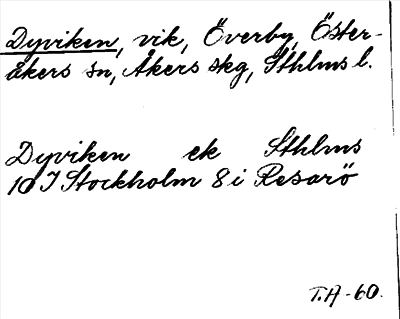 Dyviken, vik, Överby, Öster-
åkers sn, Åkers skg, Sthlms l.
Dyviken ek Sthlms
10 I Stockholm 8 i Resarö
T.A -60.